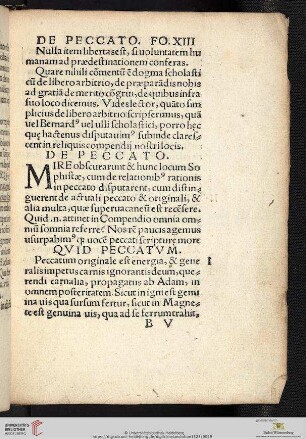 DE PECCATO. FO. XIII
Nulla item libertas est, si voluntatem hu
manam ad prædestinationem conferas.
Quare nihili cōmentū & dogma scholasti
cū de libero arbitrio, de præparādis nobis
ad gratiā de merito cōgrui, de quibus infra
suo loco dicemus. Vides lector, quāto sim
plicius de libero arbitrio scripserimus, quā
vel Bernardꝰ vel ulli scholastici, porro hęc
quę hactenus disputauimꝰ subinde clares=
cent in reliquis compendij nostri locis.
DE PECCATO.
MIRE obscurarunt & hunc locum So
phistæ, cum de relationibꝰ rationis
in peccato disputarent, cum distin
guerent de actuali peccato & originali, &
alia multa, quæ superuacaneū est recēsere.
Quid .n. attinet in Compendio omnia om
niū somnia referre? Nos rē paucis agemus
usurpabimꝰ qꝫ uoce peccati scripturę more
QVID PECCATVM.
Peccatum originale est energia, & gene
ralis impetus carnis ignorantis deum, quę
rendi carnalia, propagatus ab Adam, in
omnem posteritatem. Sicut in igni est genu
ina uis qua sursum fertur, sicut in Magne=
te est genuina uis, qua ad se ferrum trahit,
B V
UNIVERSITÄTS-
BIBLIOTHEK
HEIDELBERG
© Universitätsbibliothek Heidelberg
Baden-Württemberg